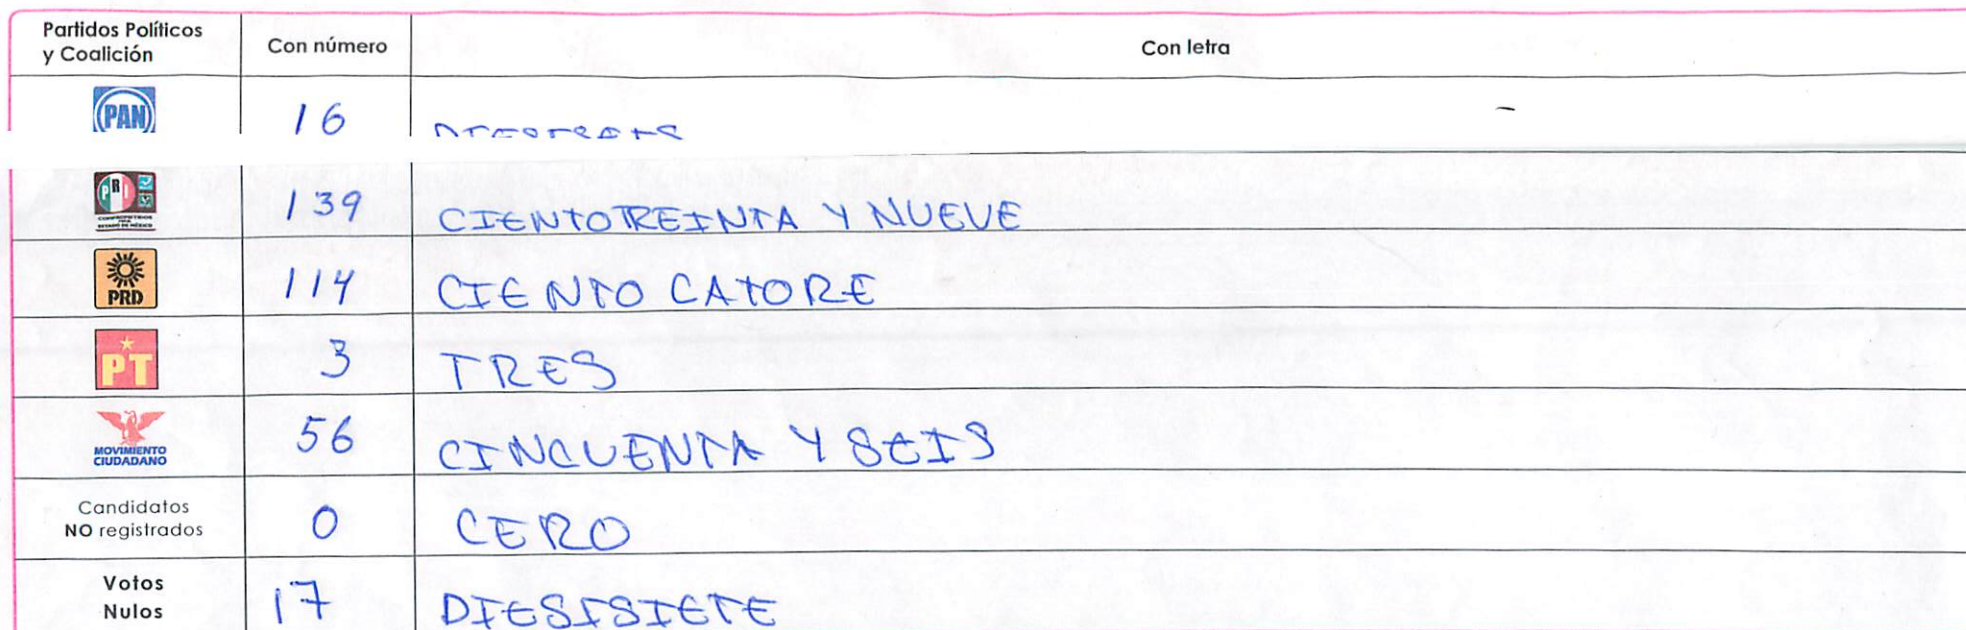 Partidos Políticos y Coalición Con número Con letra
PAN 16
PRI COMPROMETIDOS POR ESTADO DE MÉXICO 139 CIENTOTREINTA Y NUEVE
PRD 114 CIENTO CATORE
PT 3 TRES
MOVIMIENTO CIUDADANO 56 CINCUENTA Y SEIS
Candidatos NO registrados 0 CERO
Votos Nulos 17 DIESISIETE